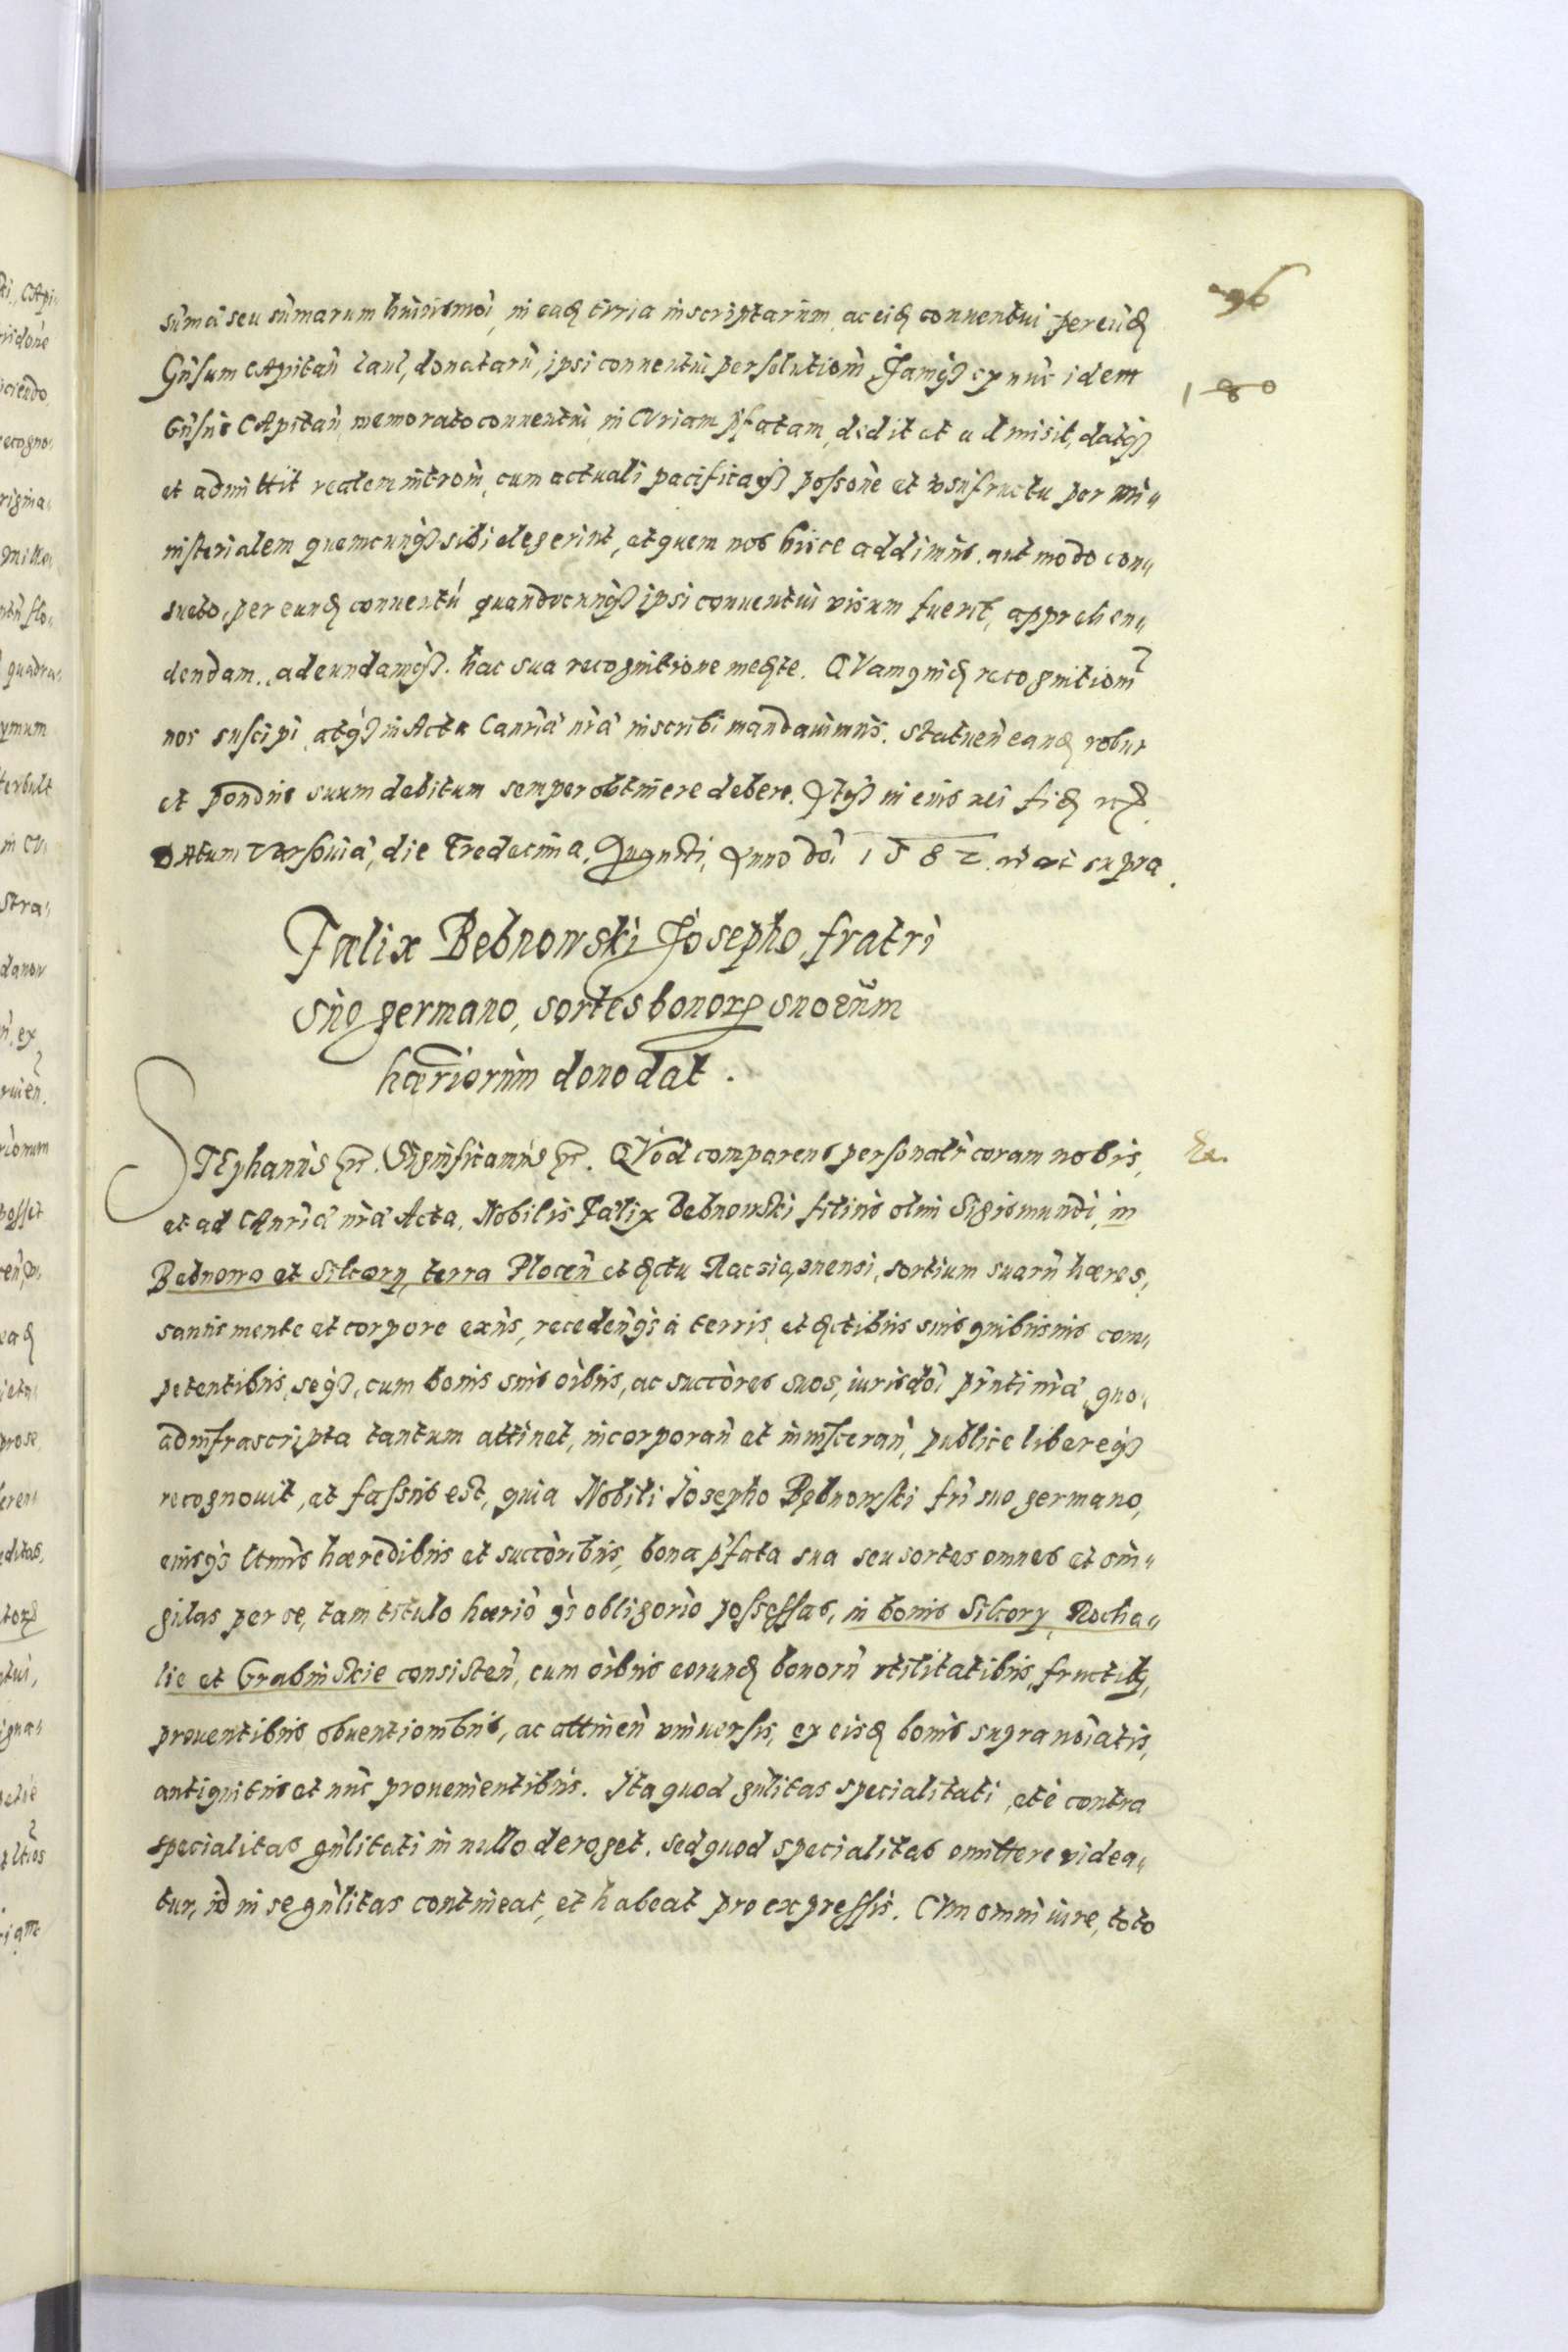 96
180
sūmā seu sūmarum huiusmōi, in eadꝫ Curia inscriptarum, ac eidꝫ conuentui per eūdꝫ
Gn̄sum CApitan̄ Laul, donatarū, ipsi conuentui persolutiom̄ Jamq̨ꝫ ex nūc idem
Gn̄sus CApitan̄, memorato conuentui, in CVriam p̄fatam, dedit et admisit, datq̨ꝫ
et admittit realem intrōm, cum actuali pacificaq̨ꝫ possōne et vsufructu per Mi„
nisterialem quemcunq̨ꝫ sibi elegerint, et quem nos hisce addimus, aut modo con„
sueto, per eundꝫ conuentū quandocunq̨ꝫ ipsi conuentui visum fuerit, apprehen„
dendam, adeundamq̨ꝫ. hac sua recognitione medꝫte. QVamquidꝫ recognitiom̄
nos suscipi, atq̨ꝫ in Acta Canr̄iæ nr̄æ inscribi mandauimus. Statuen̄ eandꝫ robur
et pondus suum debitum semper obtinere debere. In eius rei fidꝫ etꝫ.
DAtum Varsouiæ, die Tredecima, Augusti, Anno dōi 1582. ut supra.
Fælix Bebnowski Josepho, fratri
suo germano, sortes bonorꝝ suorum
hæriorum dono dat.
STEphanus etc. Significamus etc. QVod comparens personalr̄ coram nobis,
et ad CAnr̄iæ nr̄æ Acta, Nobilis Fælix Bebnowski filius olim Sigismundi, in
Bebnowo et Silcory, terra Plocen̄ et dꝫctu Raciąznensi, sortium suarū hæres,
sanus mente et corpore exn̄s, recedenq̨s à terris, et dꝫctibus suis quibusuis com„
petentibus, seq̨ꝫ, cum bonis suis oībus, ac succōres suos, iurisdōi pn̄ti nr̄æ, quo„
ad infrascripta tantum attinet, incorporan̄ et inuisceran̄, publice libereq̨ꝫ
recognouit, et fassus est, quia Nobili Josepho Bębnowski fri suo germano,
eiusq̨s ltimis hæredibus et succōribus, bona p̄fata sua seu sortes omnes et sin„
gulas per se, tam titulo hæriō q̨s obligorio possessas, in bonis Silcory, Rocha„
lie et Grabinskie consisten̄, cum oībus eorundꝫ bonorū vtilitatibus, fructibꝫ,
prouentibus obuentionibus, ac attinen̄ vniuersis, ex eisdꝫ bonis supranoīatis,
antiquitus et nūc prouenientibus. Ita quod gn̄litas specialitati, et è contra
specialitas gn̄litati in nullo deroget. sed quod specialitas omittere videa„
tur, id in se gn̄litas contineat, et habeat pro expressis. CVm omni iure, toto